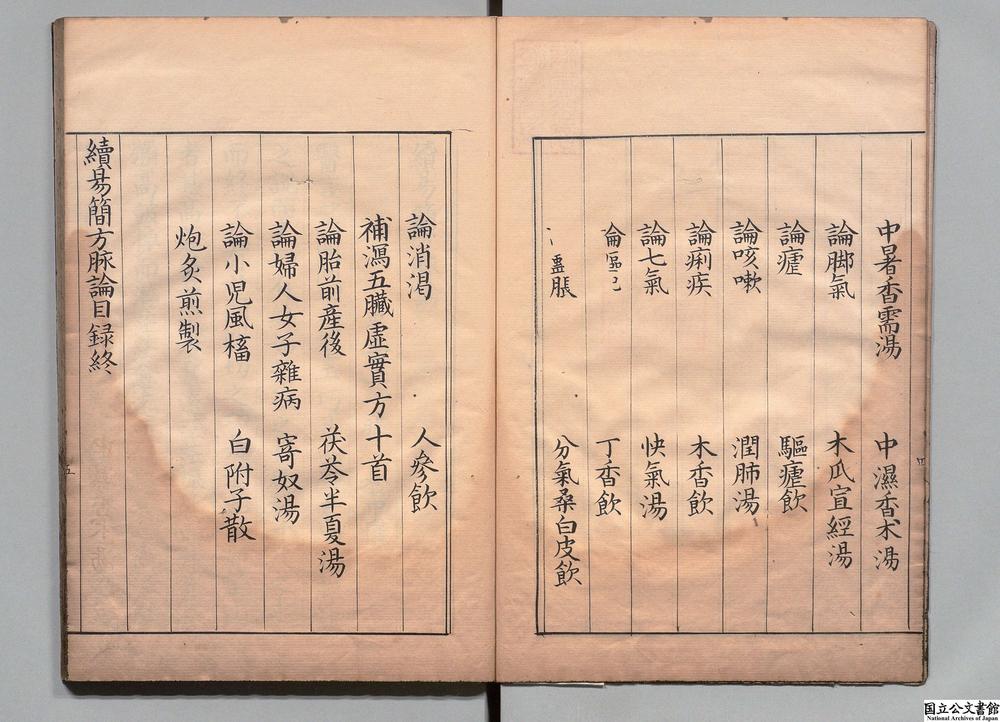 中暑香需湯　中濕香术湯
論脚氣　木瓜宣經湯
論瘧　驅瘧飲
論咳嗽　潤肺湯
論痢疾　木香飲
論七氣　快氣湯
丁香飲
脹　分氣桑白皮飲
論消渴　人參飲
補瀉五臓虚實方十首
論胎前産後　茯苓半夏湯
論婦人女子雜病　寄奴湯
論小児風搐　白附子散
炮炙煎製
續易簡方脉論目録終
国立公文書館
National Archives of Japan